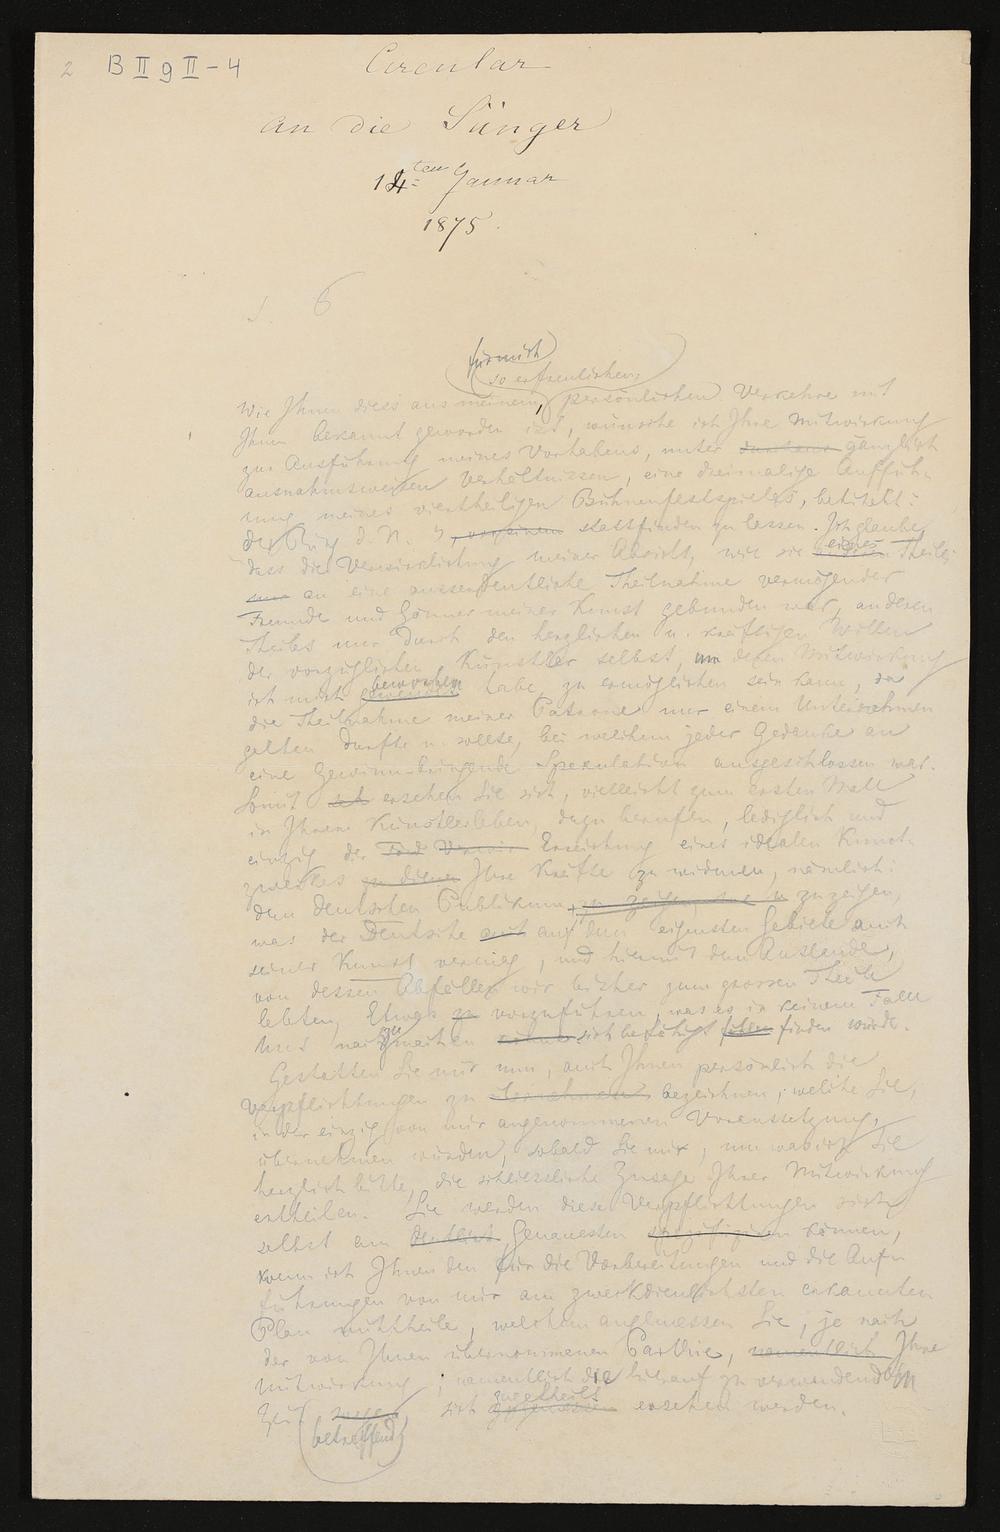 2 B II g II - 4
Circular
an die Sänger
14ten Januar
1875.
6
für mich
so erfreulichen
Wie Ihnen diess aus meinem, persönlichen Verkehre mit
Ihnen bekannt geworden ist, wünsche ich Ihre Mitwirkung
zur Ausführung meines Vorhabens, unter gänzlich
ausnahmsweisen Verhältnissen, eine dreimalige Auffüh-
rung meines viertheiligen Bühnenfestspieles, betitelt:
der Ring d. N. stattfinden zu lassen. Ich glaube,
dass die Verwirklichung meiner Absicht, wie sie eines Theils
nur an eine ausserordentliche Theilnahme vermögender
Freunde und Gönner meiner Kunst gebunden war, anderen
Theils nur durch den herzlichen u. kräftigen Willen
der vorzüglichen Künstler selbst, um deren Mitwirkung
ich mich beworben habe, zu ermöglichen sein kann, da
die Theilnahme meiner Patrone nur einem Unternehmen
gelten durfte u. sollte, bei welchem jeder Gedanke an
eine Gewinn-bringende Spekulation ausgeschlossen war.
Somit ersehen Sie sich, vielleicht zum ersten Male
in Ihrem Künstlerleben, dazu berufen, lediglich und
einzig der Erreichung eines idealen Kunst-
zweckes zu dienen Ihre Kräfte zu widmen, nämlich:
dem deutschen Publikum zu zeigen,
was der Deutsche auf dem eigensten Gebiete auch
seiner Kunst vermag, und hiermit dem Auslande,
von dessen Abfällen wir bisher zum grossen Theile
lebten, Etwas zu vorzuführen, was es in keinem Falle
uns nachzumachen sich befähigt finden würde.
Gestatten Sie mir nun, auch Ihnen persönlich die
Verpflichtungen zu bezeichnen, welche Sie,
in der einzig von mir angenommenen Voraussetzung,
übernehmen würden, sobald Sie mir, um was ich Sie
herzlich bitte, die schliessliche Zusage Ihrer Mitwirkung
ertheilen. Sie werden diese Verpflichtungen sich
selbst am deutlich Genauesten können,
wenn ich Ihnen den für die Vorbereitungen und die Auf-
führungen von mir am zweckdienlichsten erkannten
Plan mittheile, welchem angemessen Sie, je nach
der von Ihnen übernommenen Parthie, namentlich Ihre
Mitwirkung, namentlich die hierauf zu verwendende
Zeit betreffend sich zugetheilt ersehen werden.